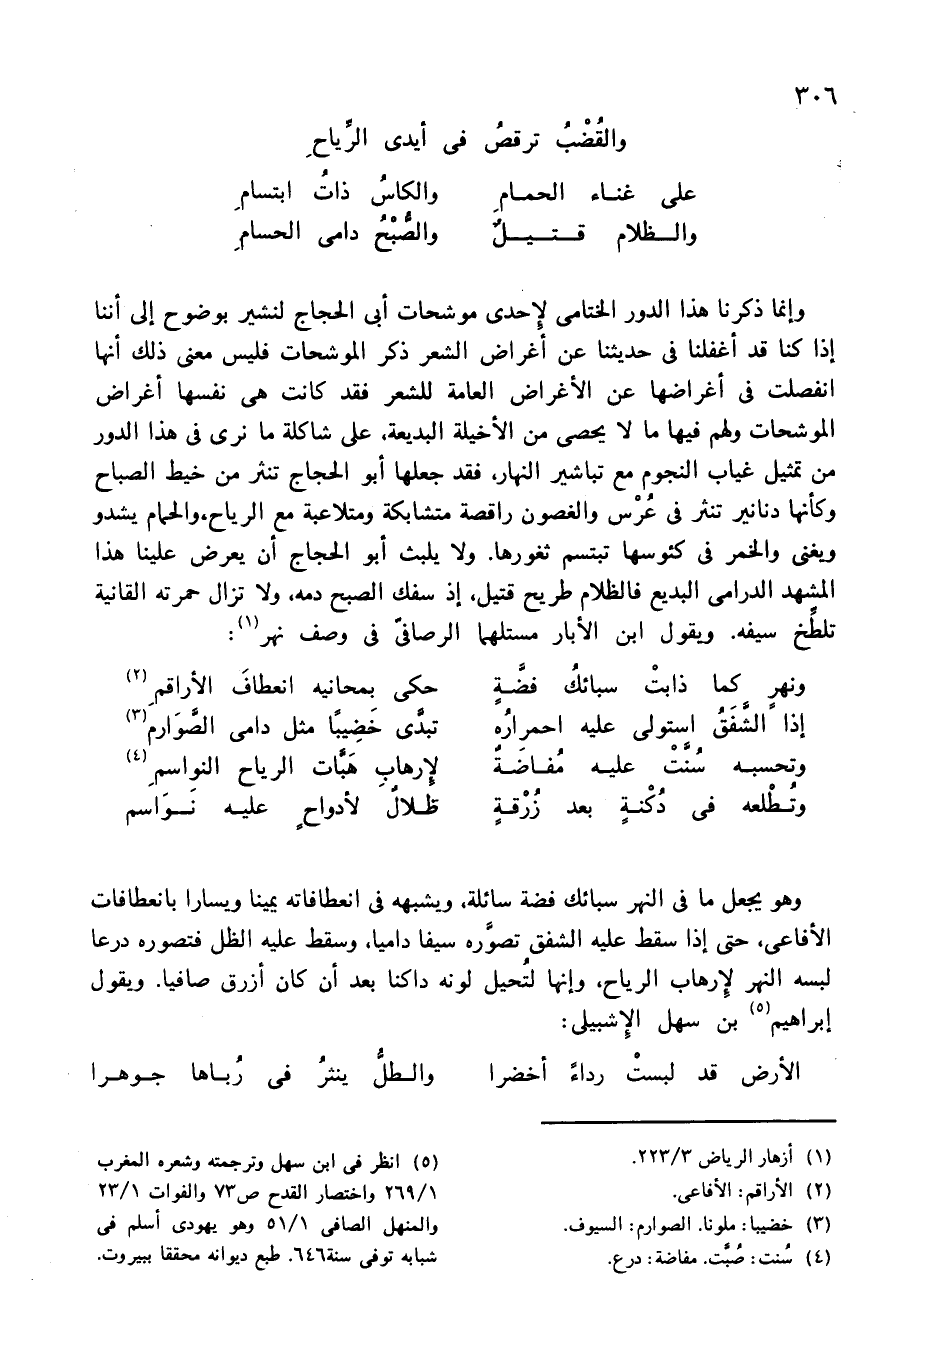 ٣٠٦
والقُضْبُ ترقصُ فى أيدى الرِّياحِ
على غناء الحمامِ والكاسُ ذاتُ ابتسامِ
والظلام قتيلٌ والصُّبْحُ دامى الحسامِ
وإنما ذكرنا هذا الدور الختامى لإحدى موشحات أبى الحجاج لنشير بوضوح إلى أننا
إذا كنا قد أغفلنا فى حديثنا عن أغراض الشعر ذكر الموشحات فليس معنى ذلك أنها
انفصلت فى أغراضها عن الأغراض العامة للشعر فقد كانت هى نفسها أغراض
الموشحات ولهم فيها ما لا يحصى من الأخيلة البديعة، على شاكلة ما نرى فى هذا الدور
من تمثيل غياب النجوم مع تباشير النهار، فقد جعلها أبو الحجاج تنثر من خيط الصباح
وكأنها دنانير تنثر فى عُرْس والغصون راقصة متشابكة ومتلاعبة مع الرياح، والحمام يشدو
ويغنى والخمر فى كئوسها تبتسم ثغورها. ولا يلبث أبو الحجاج أن يعرض علينا هذا
المشهد الدرامى البديع فالظلام طريح قتيل، إذ سفك الصبح دمه، ولا تزال حمرته القانية
تلطِّخ سيفه. ويقول ابن الأبار مستلهما الرصافىّ فى وصف نهر(١):
ونهرٍ كما ذابتْ سبائكُ فضَّةٍ حكى بمحانيه انعطافَ الأراقمِ(٢)
إذا الشَّفَقُ استولى عليه احمرارُه تبدَّى خَضِيبًا مثل دامى الصَّوَارم(٣)
وتحسبه سُنَّتْ عليه مُفاضَةٌ لإرهابِ هَبَّات الرياح النواسمِ(٤)
وتُطْلعه فى دُكْنةٍ بعد زُرْقةٍ ظلالٌ لأدواحٍ عليه نَوَاسم
وهو يجعل ما فى النهر سبائك فضة سائلة، ويشبهه فى انعطافاته يمينا ويسارا بانعطافات
الأفاعى، حتى إذا سقط عليه الشفق تصوَّره سيفا داميا، وسقط عليه الظل فتصوره درعا
لبسه النهر لإرهاب الرياح، وإنها لتُحيل لونه داكنا بعد أن كان أزرق صافيا. ويقول
إبراهيم(٥) بن سهل الإشبيلى:
الأرض قد لبستْ رداءً أخضرا والطلُّ ينثرُ فى رُباها جوهرا
(١) أزهار الرياض ٢٢٣/٣.
(٢) الأراقم: الأفاعى.
(٣) خضيبا: ملونا. الصوارم: السيوف.
(٤) سُنت: صُبَّت. مفاضة: درع.
(٥) انظر فى ابن سهل وترجمته وشعره المغرب
٢٦٩/١ واختصار القدح ص٧٣ والفوات ٢٣/١
والمنهل الصافى ٥١/١ وهو يهودى أسلم فى
شبابه توفى سنة ٦٤٦. طبع ديوانه محققا ببيروت.